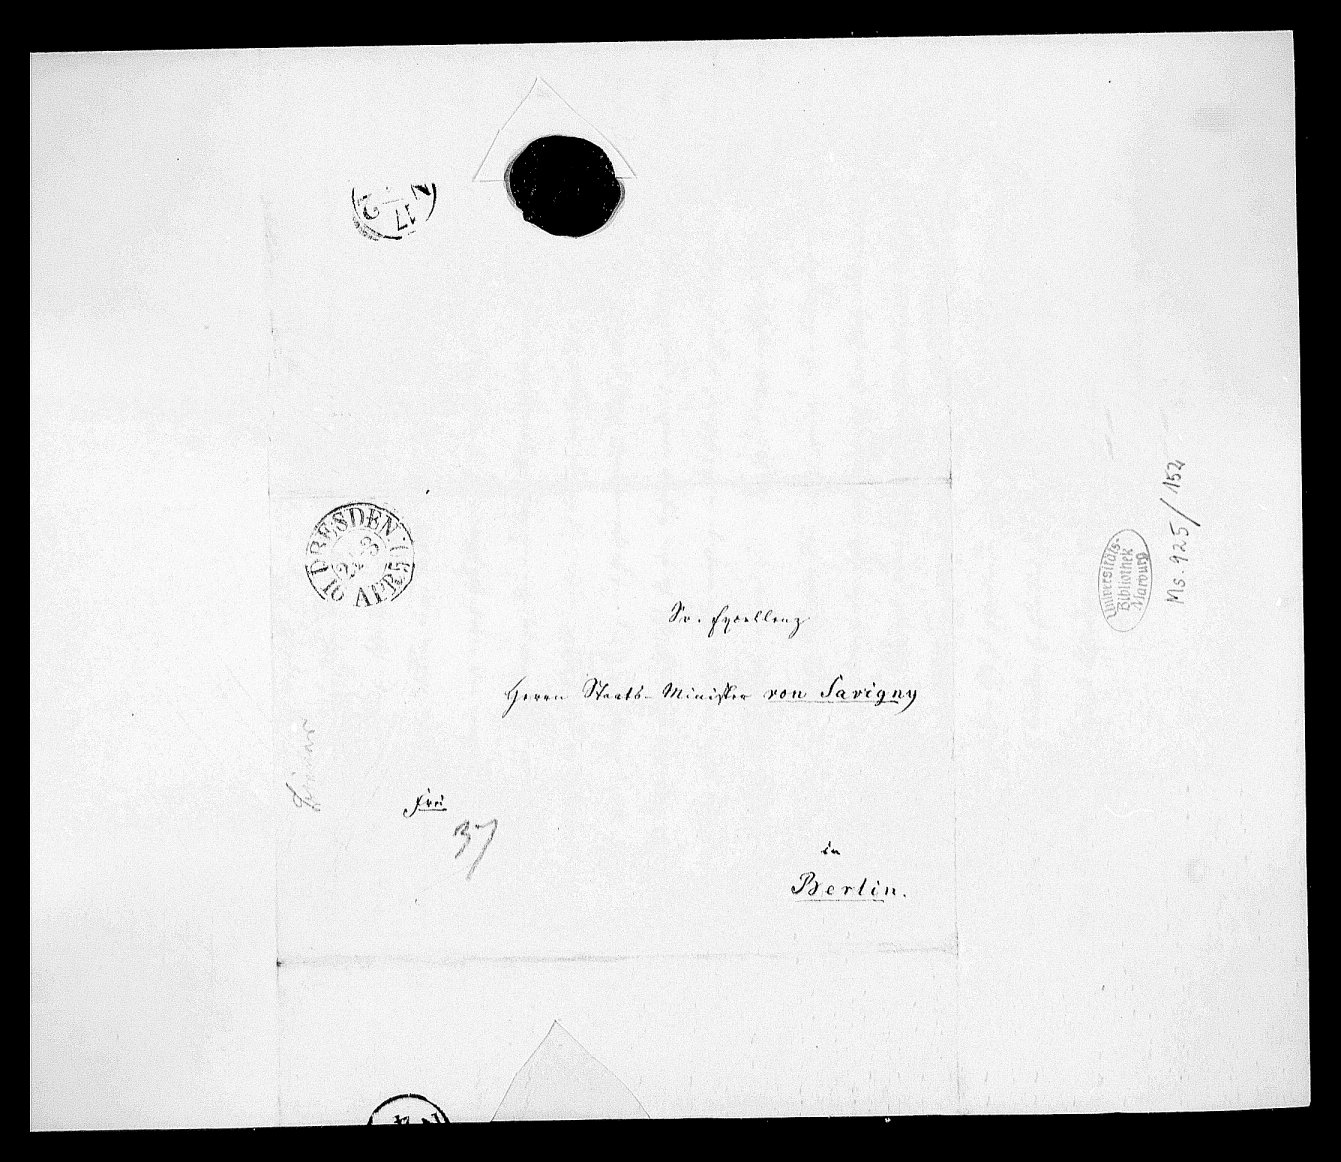 N 17 2
DRESDEN
16 APR
Universitäts-
Bibliothek
Marburg
Ms. 925/152
Sr. Excellenz
Herrn Staats-Minister von Savigny
frei
37
in
Berlin.